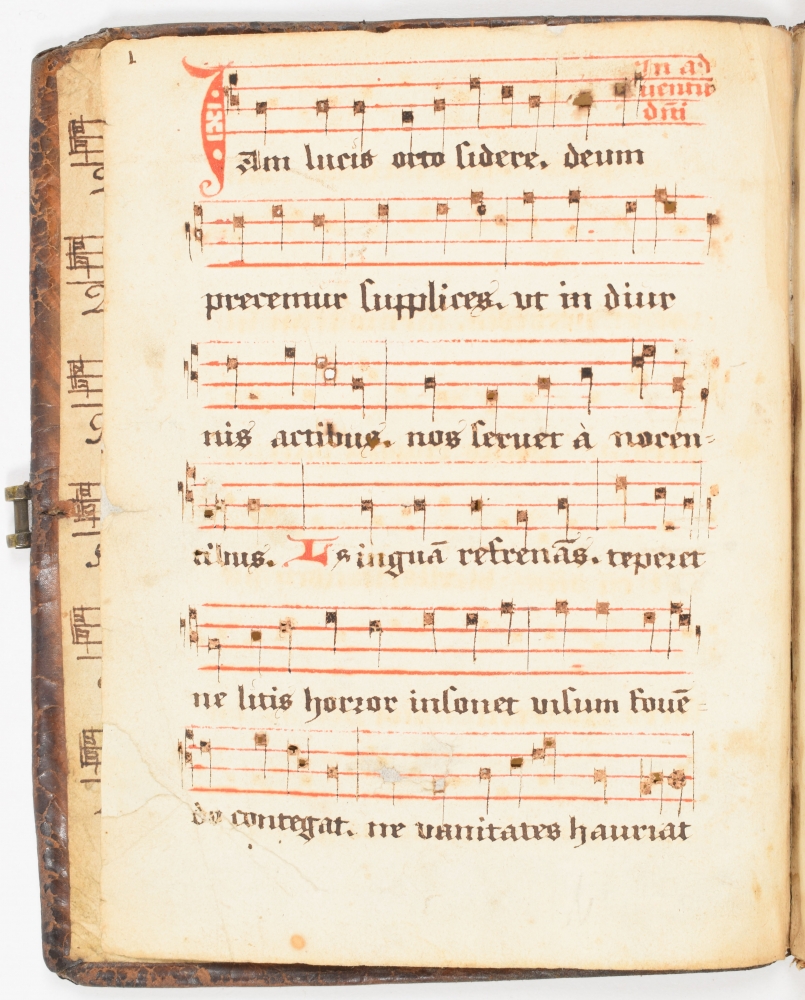 1
In ad
uentū
dñi
IAm lucis orto sidere, deum
precemur supplices. vt in diur
nis actibus. nos seruet à nocen-
tibus. Linguā refrenās. teperet
ne litis horror insonet visum fouē-
do contegat. ne vanitates hauriat